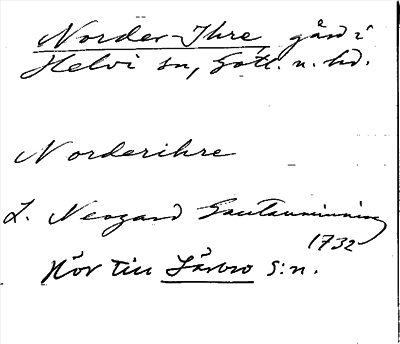 Norder-Ihre, gård i
Helvi sn, Gotl. n. hd.
Norderihre
L. Neogard Gautauminning
1732
Hör till Lärbro S:n.